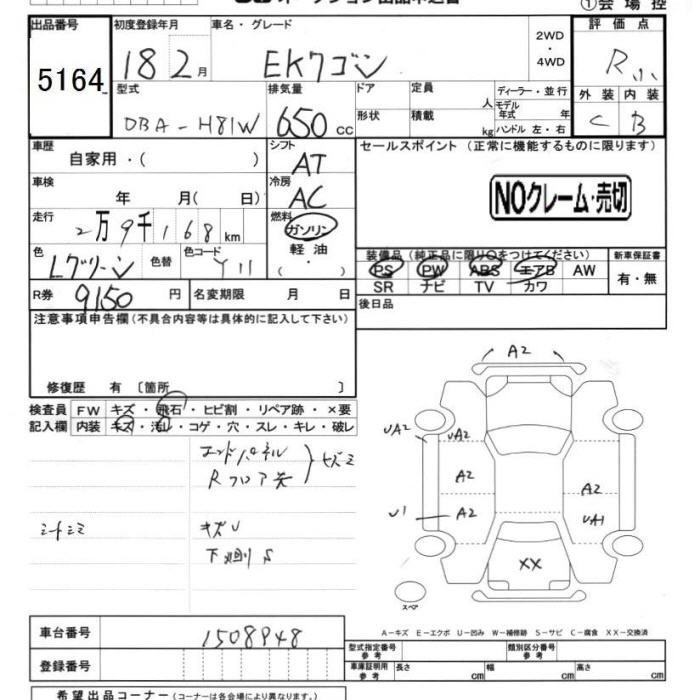 ①会場控
出品番号 初度登録年月 車名・グレード 2WD ・ 4WD 評価点
5164 18 2月 EKワゴン R小
型式 排気量 ドア 定員 人 ディーラー・並行 外装 内装
DBA-H81W 650cc 形状 積載 kg モデル年式 年 ハンドル 左・右 C B
車歴 シフト セールスポイント (正常に機能するものに限ります)
自家用・( ) AT
車検 冷房
年 月( 日) AC NOクレーム・売切
走行 燃料
2万9千168km ガソリン
軽油
・( )
色 色替 色コード 装備品 (純正品に限り○をつけてください) 新車保証書
Lグリーン Y11 PS PW ABS エアB AW 有・無
SR ナビ TV カワ
R券 9150円 名変期限 月 日 後日品
注意事項申告欄(不具合内容等は具体的に記入して下さい)
修復歴 有 〔箇所 〕
検査員 FW キズ・飛石・ヒビ割・リペア跡・×要
記入欄 内装 キズ・汚レ・コゲ・穴・スレ・キレ・破レ
エンドパネル
Rフロア先
キズU
下廻りS
A2
UA2
UA2
A2
A2
U1
A2
UA1
XX
スペア
A-キズ E-エクボ U-凹み W-補修跡 S-サビ C-腐食 XX-交換済
車台番号 1508948
登録番号
型式指定番号 参考 類別区分番号 参考
車庫証明用 参考 長さ cm 幅 cm 高さ cm
希望出品コーナー(コーナーは各会場により異なります。)